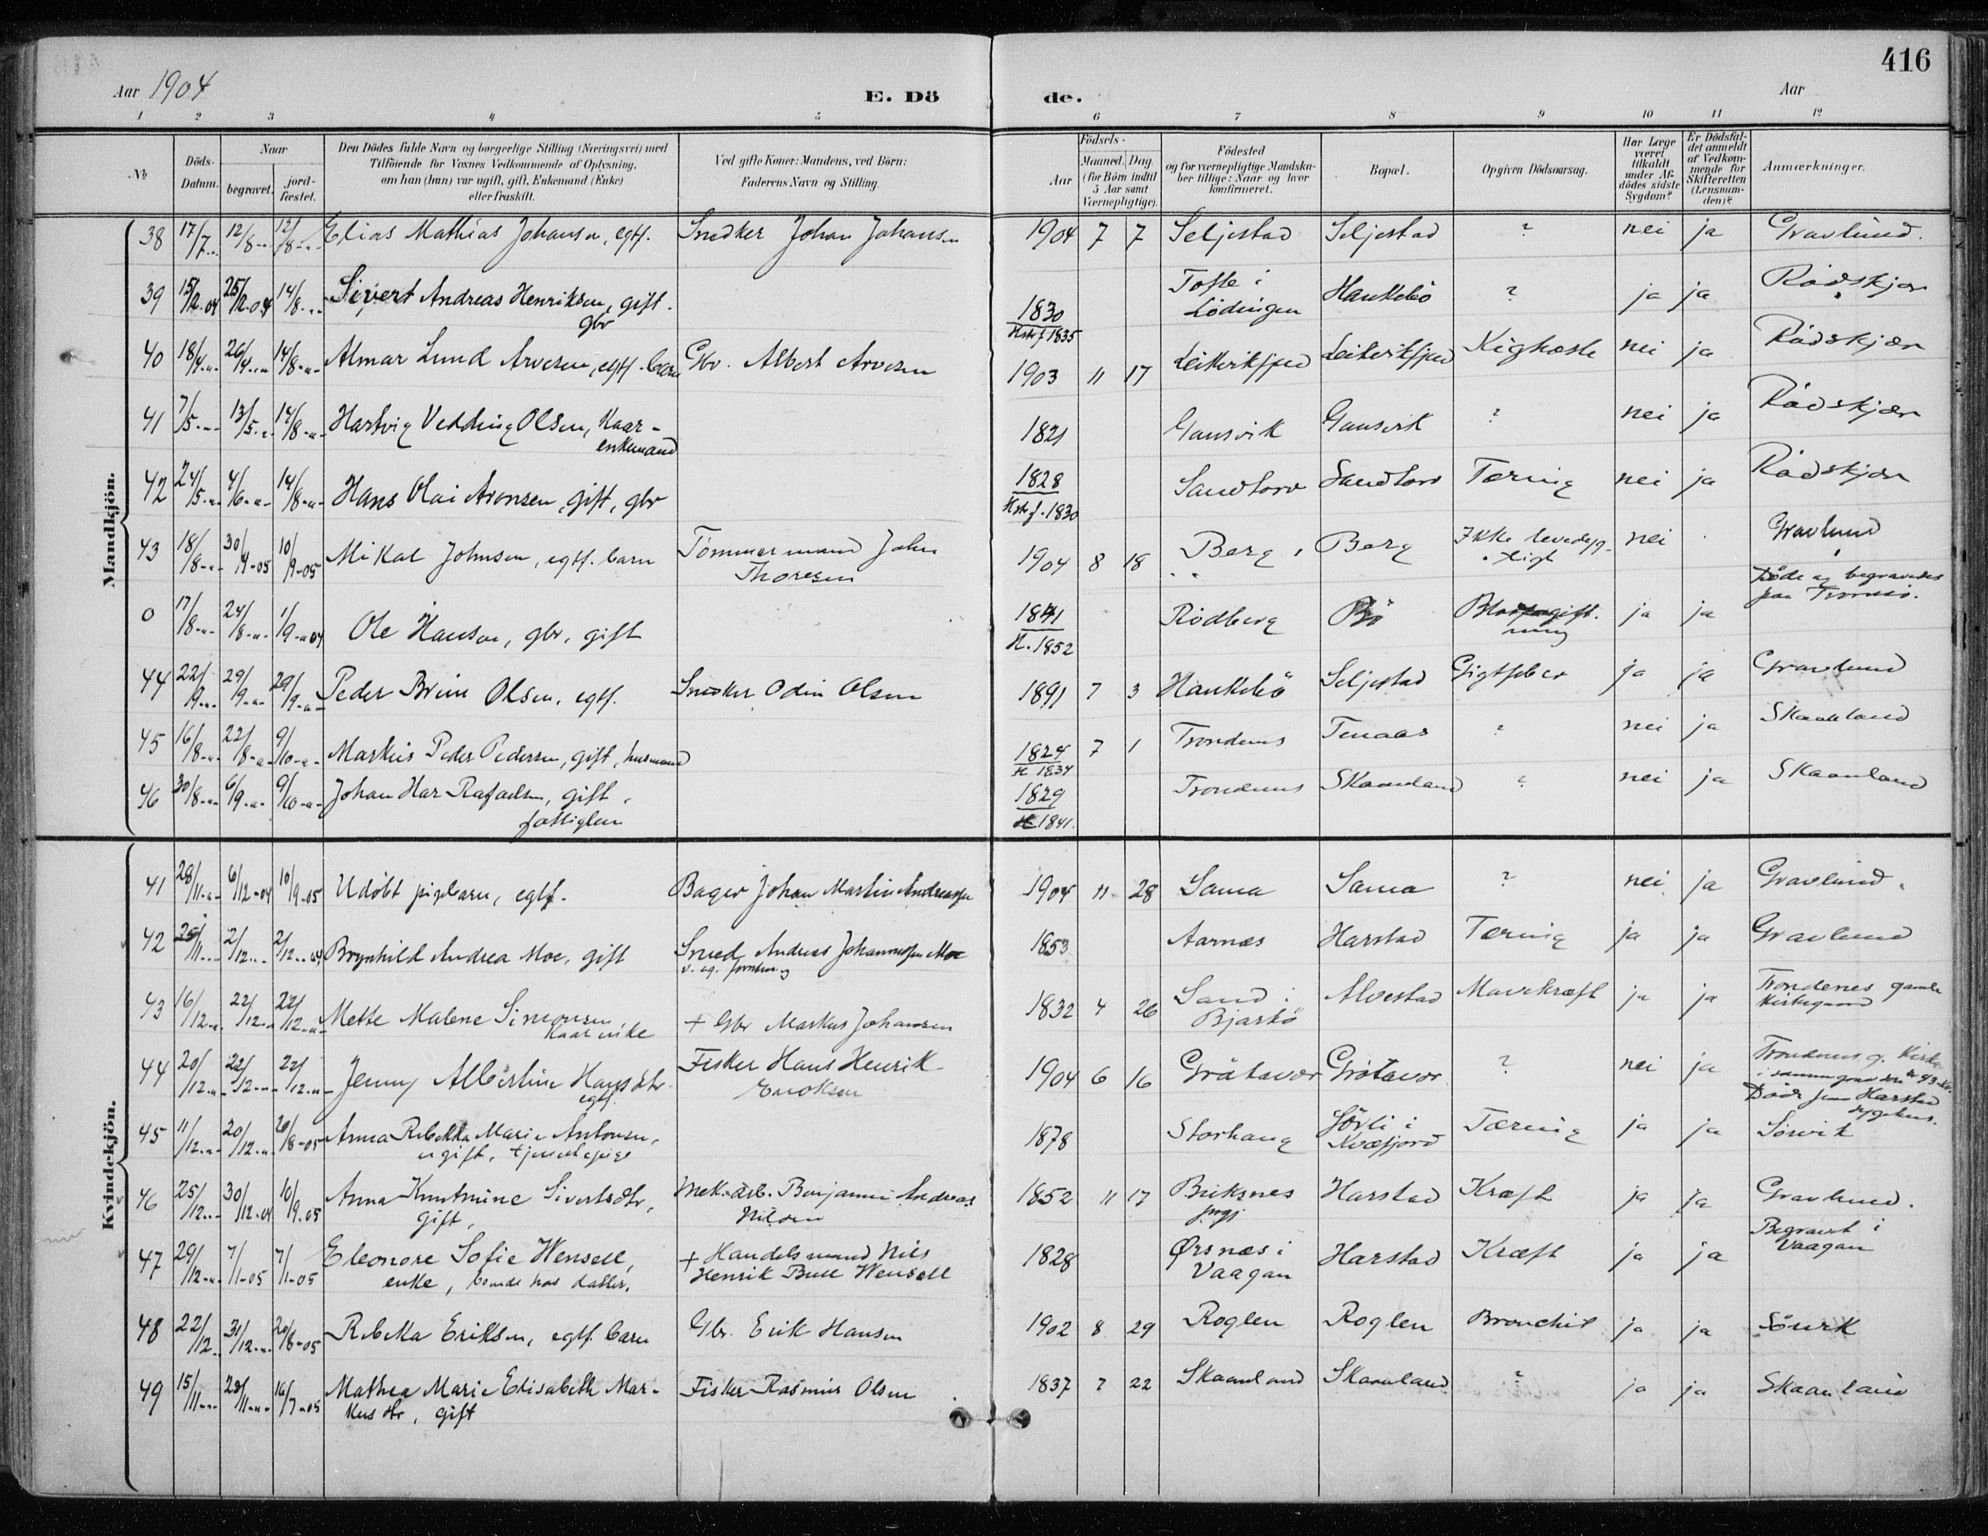 416
Aar 1904
E. Dö
de.
Aar
1 2 3 4 5 6 7 8 9 10 11 12
№
Döds-Datum.
Naar
begravet.
jord-fæstet.
Den Dödes fulde Navn og borgerlige Stilling (Næringsvei) med
Tilföiende for Voxnes Vedkommende af Oplysning,
om han (hun) var ugift, gift, Enkemand (Enke)
eller fraskilt.
Ved gifte Koner: Mandens, ved Börn:
Faderens Navn og Stilling.
Födsels-
Aar
Maaned. Dag.
(for Börn indtil
5 Aar samt
Værnepligtige).
Födested
og for værnepligtige Mandska-
ber tillige: Naar og hvor
konfirmeret.
Bopæl.
Opgiven Dödsaarsag.
Har Læge
været
tilkaldt
under Af-
dödes sidste
Sygdom?
Er Dödsfal-
det anmeldt
af Vedkom-
mende for
Skifteretten
(Lensman-
den)?
Anmærkninger.
Mandkjön.
38 17/7 12/8 12/8 Elias Mathias Johansen, egtf. Snedker Johan Johansen 1904 7 7 Seljestad Seljestad ? nei ja Gravlund.
39 15/2.04 25/2.04 14/8 Sivert Andreas Henriksen, gift. gbr 1830 1835 Tofte i Lödingen Haukebö ? ja ja Rødskjær
40 18/4 26/4 14/8 Almar Lund Arvesen, egtf. barn Gbr. Albert Arvesen 1903 11 17 Kighoste nei ja Rødskjær
41 7/5 13/5 14/8 Hartvig Vedding Olsen, Kaar-enkemand 1821 Gausvik Gausvik ? nei ja Rødskjær
42 24/5 4/6 14/8 Hans Olai Aronsen, gift, gbr 1828 1830 Sandtorv Sandtorv Tæring nei ja Rødskjær
43 18/8 30/4-05 10/9-05 Mikal Johnsen, egtf. barn Tömmermand John Thoresen 1904 8 18 Berg Berg Ikke levedyg-tigt nei Gravlund
0 17/8 24/8 1/9 04 Ole Hansen, gbr, gift 1841 H. 1852 Rødberg Bö Blodforgift-ning ja ja Døde og begravedes paa Tromsö.
44 22/9 29/9 29/9 Peder Brun Olsen, egtf. Snedker Odin Olsen 1891 7 3 Haukebö Seljestad Gigtfeber ja ja Gravlund
45 16/8 22/8 9/10 Markus Peder Pedersen, gift, husmand 1824 H 1834 7 1 Trondenes Tenaas ? nei ja Skaanland
46 30/8 6/9 9/10 Johan Har Rafaelsen, gift, fattiglem 1829 H 1841. Trondenes Skaanland ? nei ja Skaanland
Kvindekjön.
41 28/11 6/12-04 10/9-05 Udöbt pigebarn, egtf. Bager Johan Martin Andreassen 1904 11 28 Sama Sama ? nei ja Gravlund.
42 25/11 2/12 2/12 04 Brynhild Andrea Moe, gift Smed Andreas Johannesen Moe 1853 Aarnæs Harstad Tæring ja ja Gravlund
43 16/12 22/12 22/12 Mette Malene Simonsen Kaarenke + Gbr Markus Johansen 1832 4 26 Sand i Bjarkö Alvestad Mavekræft ja ja Trondenes gamle Kirkegaard
44 20/12 22/12 22/12 Jenny Albertine Hansdtr egtf. Fisker Hans Henrik Enoksen 1904 6 16 Gråtavær Grötavær ? nei ja Trondenes g. Kirke i samme grav som № 43
45 11/12 20/12 20/8-05 Anna Rebekka Marie Antonsen, ugift, tjenestepige 1878 Storhaug Sörli i Kvæfjord Tæring ja ja Döde paa Harstad sygehus. Sörvik
46 25/12 30/12-04 10/9-05 Anna Knutmine Sivertsdtr, gift, Mek. arb. Benjamin Andreas Nilsen 1852 11 17 Buksnes prgj Harstad Kræft ja ja Gravlund.
47 29/12 7/1-05 7/1-05 Eleonore Sofie Wensell, enke, boende hos datter. + Handelsmand Nils Henrik Bull Wensell 1828 Ørsnæs i Vaagan Harstad Kræft ja ja Begravet i Vaagan
48 22/12 31/12 20/8-05 Rebekka Eriksen, egtf. barn Gbr. Erik Hansen 1902 8 29 Roglen Roglen Bronchit ja ja Sörvik
49 15/11 23/11 16/7-05 Mathea Marie Elisabeth Mar-kusdtr, gift Fisker Rasmus Olsen 1837 7 22 Skaanland Skaanland ? ja ja Skaanland